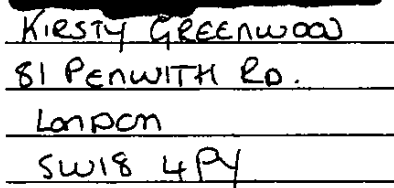 KIRSTY GREENWOOD
81 PENWITH RD.
LONDON
SW18 4PY